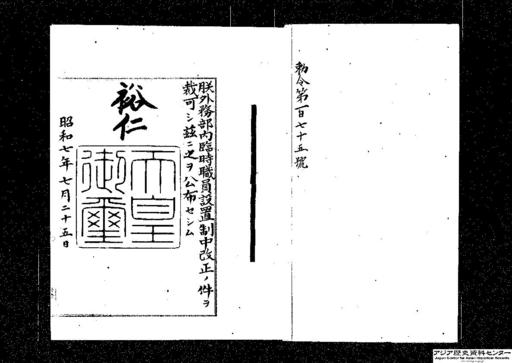 勅令第一百七十五號
朕外務部內臨時職員設置制中改正ノ件ヲ
裁可シ茲ニ之ヲ公布セシム
裕仁
天皇
御璽
昭和七年七月二十五日
アジア歴史資料センター
Japan Center for Asian Historical Records